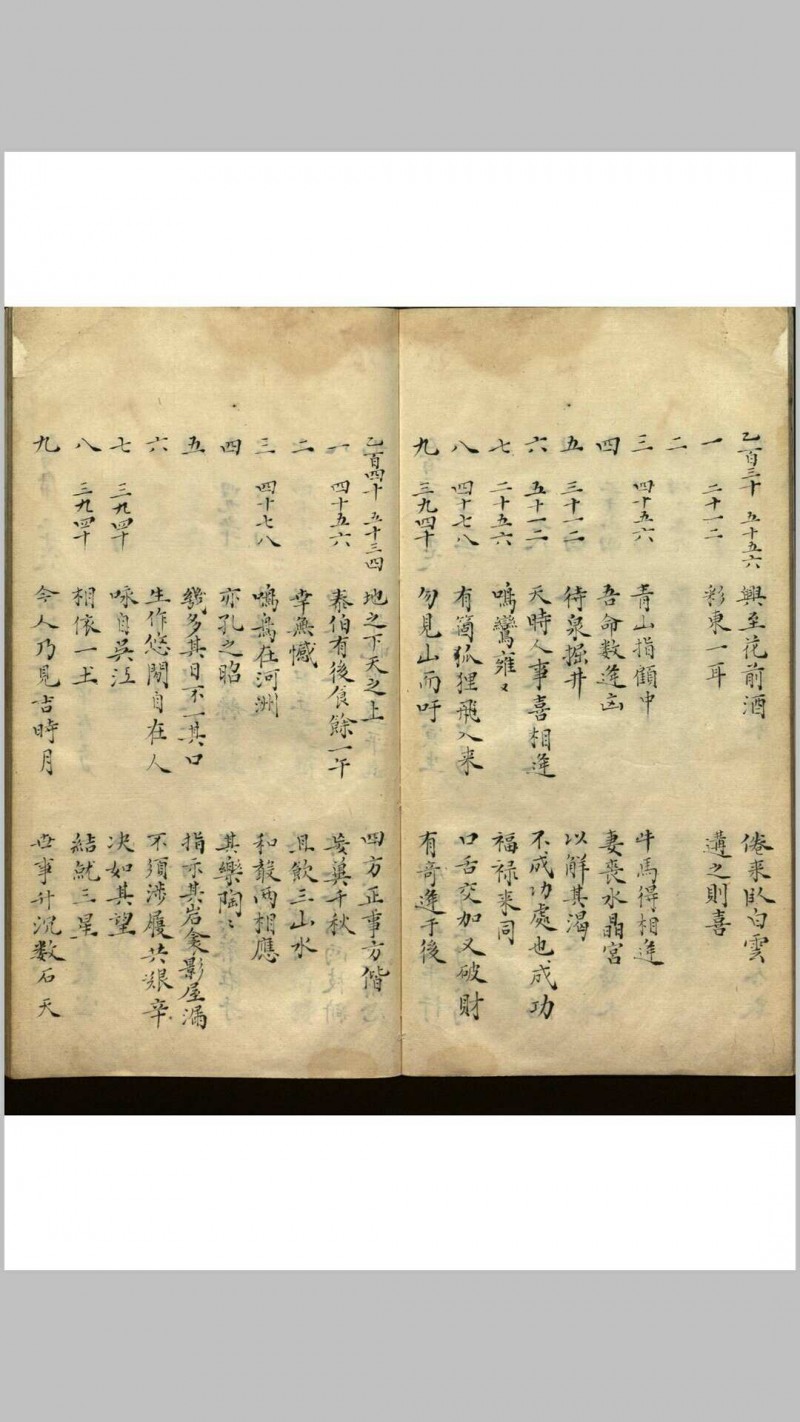 乙一百三十 五十五六 興至花前酒 倦来臥白雲
一 二十一二 彩東一耳 遘之則喜
二
三 四十五六 青山指顧中 牛馬得相逢
四 吾命数逢凶 妻喪水晶宮
五 三十一二 待泉掘井 以解其渴
六 五十一二 天時人事喜相逢 不成功處也成功
七 二十五六 鳴鸞雍〻 福禄来同
八 四十七八 有箇狐狸飛入来 口舌交加又破財
九 三九四十 勿見山而吁 有奇逢于後
乙一百四十 五十三四 地之下天之上 四方正事方偕
一 四十五六 泰伯有後食餘一午 千秋
二 幸無憾 且飲三山水
三 四十七八 鳴鳥在河洲 和敲两相應
四 亦孔之昭 其樂陶〻
五 幾多其日不一其口 指示其岩衾影屋漏
六 生作悠閒自在人 不須涉履共艱辛
七 三九四十 咏自吴江 决如其望
八 三九四十 相依一土 結就三星
九 今人乃見吉時月 世事升沉数石天